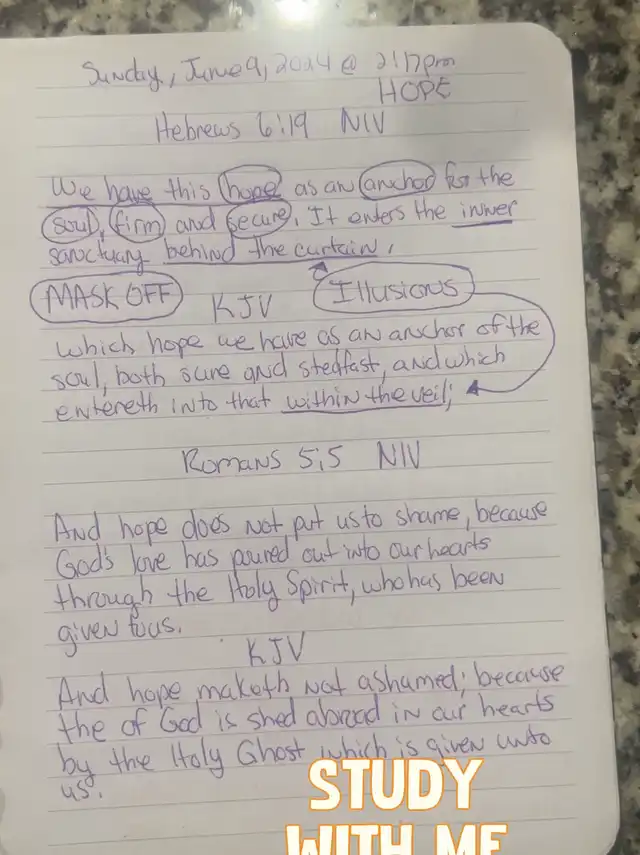 Sunday, June 9, 2024 @ 2:17pm
HOPE
Hebrews 6:19 NIV
We have this hope as an anchor for the
soul, firm and secure. It enters the inner
sanctuary behind the curtain,
MASK OFF
Illusions
KJV
Which hope we have as an anchor of the
soul, both sure and stedfast, and which
entereth into that within the veil;
Romans 5:5 NIV
And hope does not put us to shame, because
God's love has poured out into our hearts
through the Holy Spirit, who has been
given to us.
KJV
And hope maketh not ashamed; because
the of God is shed abroad in our hearts
by the Holy Ghost which is given unto
us.
STUDY
WITH ME